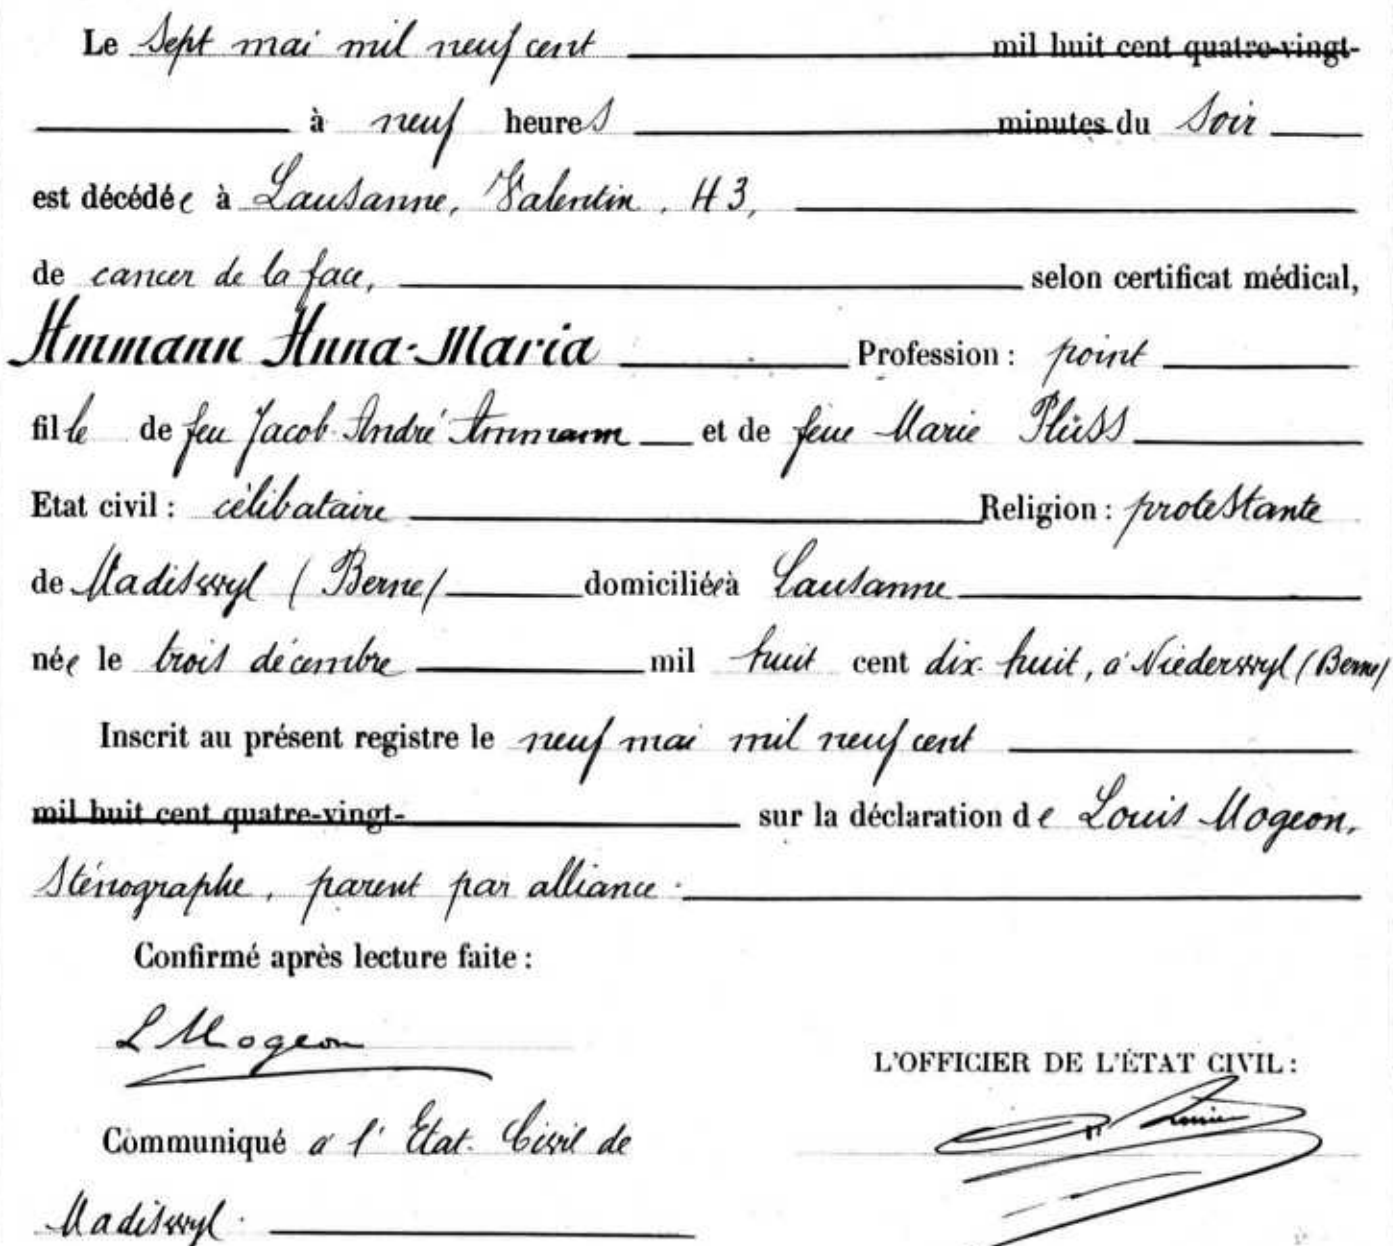 Le Sept mai mil neuf cent mil huit cent quatre-vingt-
à neuf heures minutes du Soir
est décédée à Lausanne, Valentin, 43,
de cancer de la face, selon certificat médical,
Ammann Anna-Maria Profession : point
fille de feu Jacob-André Ammann et de feue Marie Plüss
Etat civil : célibataire Religion : protestante
de Madiswyl (Berne) domiciliée à Lausanne
née le trois décembre mil huit cent dix-huit, à Niederwyl (Berne)
Inscrit au présent registre le neuf mai mil neuf cent
mil huit cent quatre-vingt- sur la déclaration de Louis Mogeon,
Sténographe, parent par alliance.
Confirmé après lecture faite :
L Mogeon
L'OFFICIER DE L'ÉTAT CIVIL :
Communiqué à l'Etat-Civil de
Madiswyl.